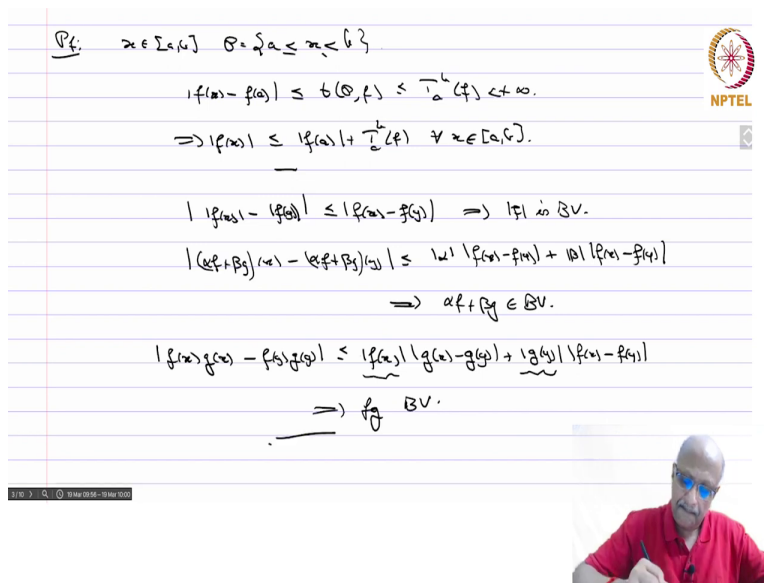 Pf: x ∈ [a,b] P = {a ≤ x ≤ b}
NPTEL
|f(x) - f(a)| ≤ t(P,f) ≤ T_a^b(f) < +∞.
⇒ |f(x)| ≤ |f(a)| + T_a^b(f) ∀ x ∈ [a,b].
| |f(x)| - |f(y)| | ≤ |f(x) - f(y)| ⇒ |f| is BV.
|(αf+βg)(x) - (αf+βg)(y)| ≤ |α| |f(x) - f(y)| + |β| |f(x) - f(y)|
⇒ αf + βg ∈ BV.
|f(x)g(x) - f(y)g(y)| ≤ |f(x)| |g(x) - g(y)| + |g(y)| |f(x) - f(y)|
⇒ fg BV.
3/10 19 Mar 09:56 – 19 Mar 10:00